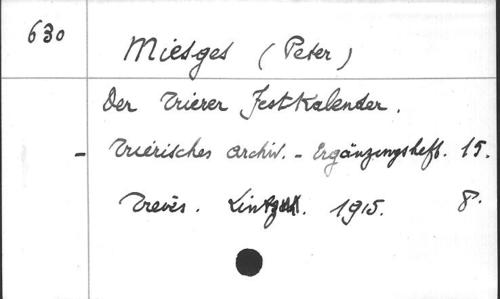 630
Miesges (Peter)
Der Trierer Festkalender.
- Trierisches archiv. - Ergänzungsheft. 15.
Trevès. Lintz. 1915. 8°.